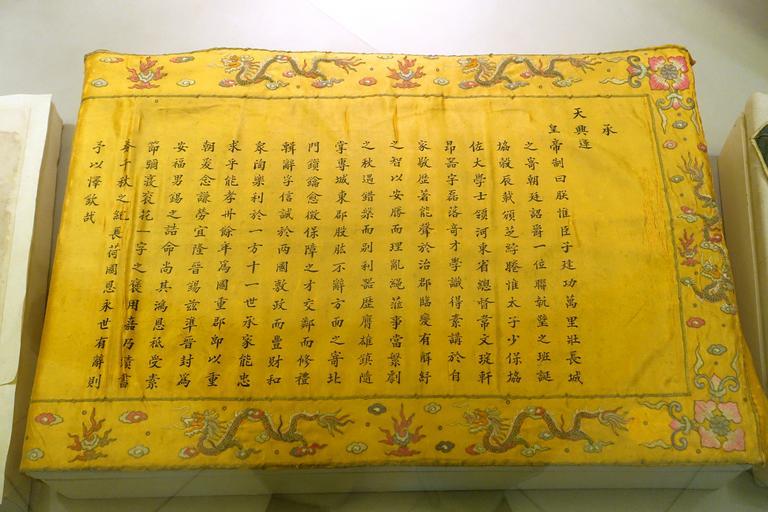 承
天興運
皇帝制曰朕惟臣子建功萬里壯長城
之寄朝廷詔爵一位聯執璧之班誕
協穀辰載頒芝綍睠惟太子少保協
佐大學士領河東省總督常文琔軒
昂器宇磊落奇才學識得素講於自
家敭歷著能聲於治郡臨變有解紓
之智以安勝而理亂繩蒞事當繁劇
之秋遇錯槃而別利器歷膺雄鎮隨
掌專城東郡股肱不辭方面之寄北
門鎖鑰愈徵保障之才交鄰而修禮
輯辭孚信誠於兩國敷政而豐財和
衆陶樂利於一方十一世承家能忠
求乎能孝卅餘年為國重郡卽以重
朝爰念謙勞宜隆晉錫玆準晉封為
安福男錫之誥命尚其鴻恩祗受素
節彌袞花一字之褒用嘉乃績書
千秋之紀長荷國恩永世有辭則
予以懌欽哉